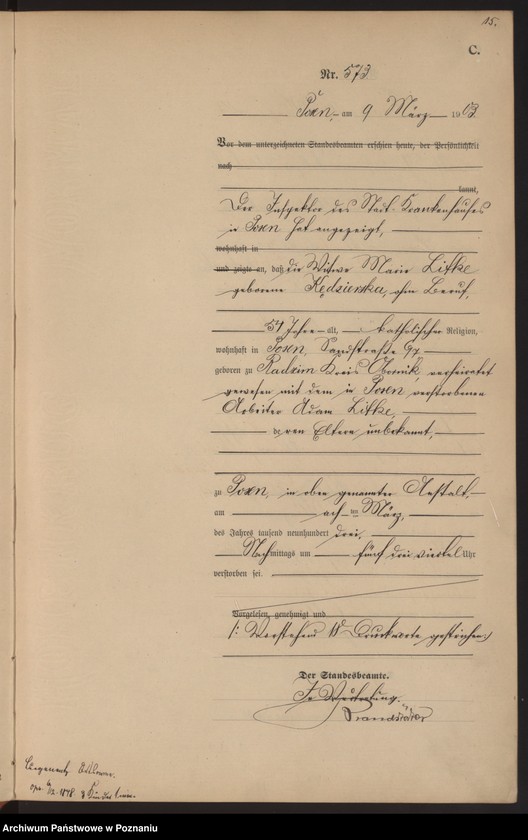 15.
C.
Nr. 573
Posen, am 9 März 1903
Vor dem unterzeichneten Standesbeamten erschien heute, der Persönlichkeit
nach
kannt,
Der Inspektor des Stadt-Krankenhauses
in Posen hat angezeigt,
wohnhaft in
und zeigte an, daß die Witwe Marie Litke
geborene Kędzierska, ohne Beruf,
54 Jahre alt, katholischer Religion,
wohnhaft in Posen, Sandstraße 9
geboren zu Radzim Kreis Obornik, verheiratet
gewesen mit dem in Posen verstorbenen
Arbeiter Adam Litke,
deren Eltern unbekannt,
zu Posen, in oben genannter Anstalt,
am achten März,
des Jahres tausend neunhundert drei,
Nachmittags um fünf drei viertel Uhr
verstorben sei.
Vorgelesen, genehmigt und
/: Vorstehend Druckworte gestrichen :/
Der Standesbeamte.
In Vertretung.
Archiwum Państwowe w Poznaniu